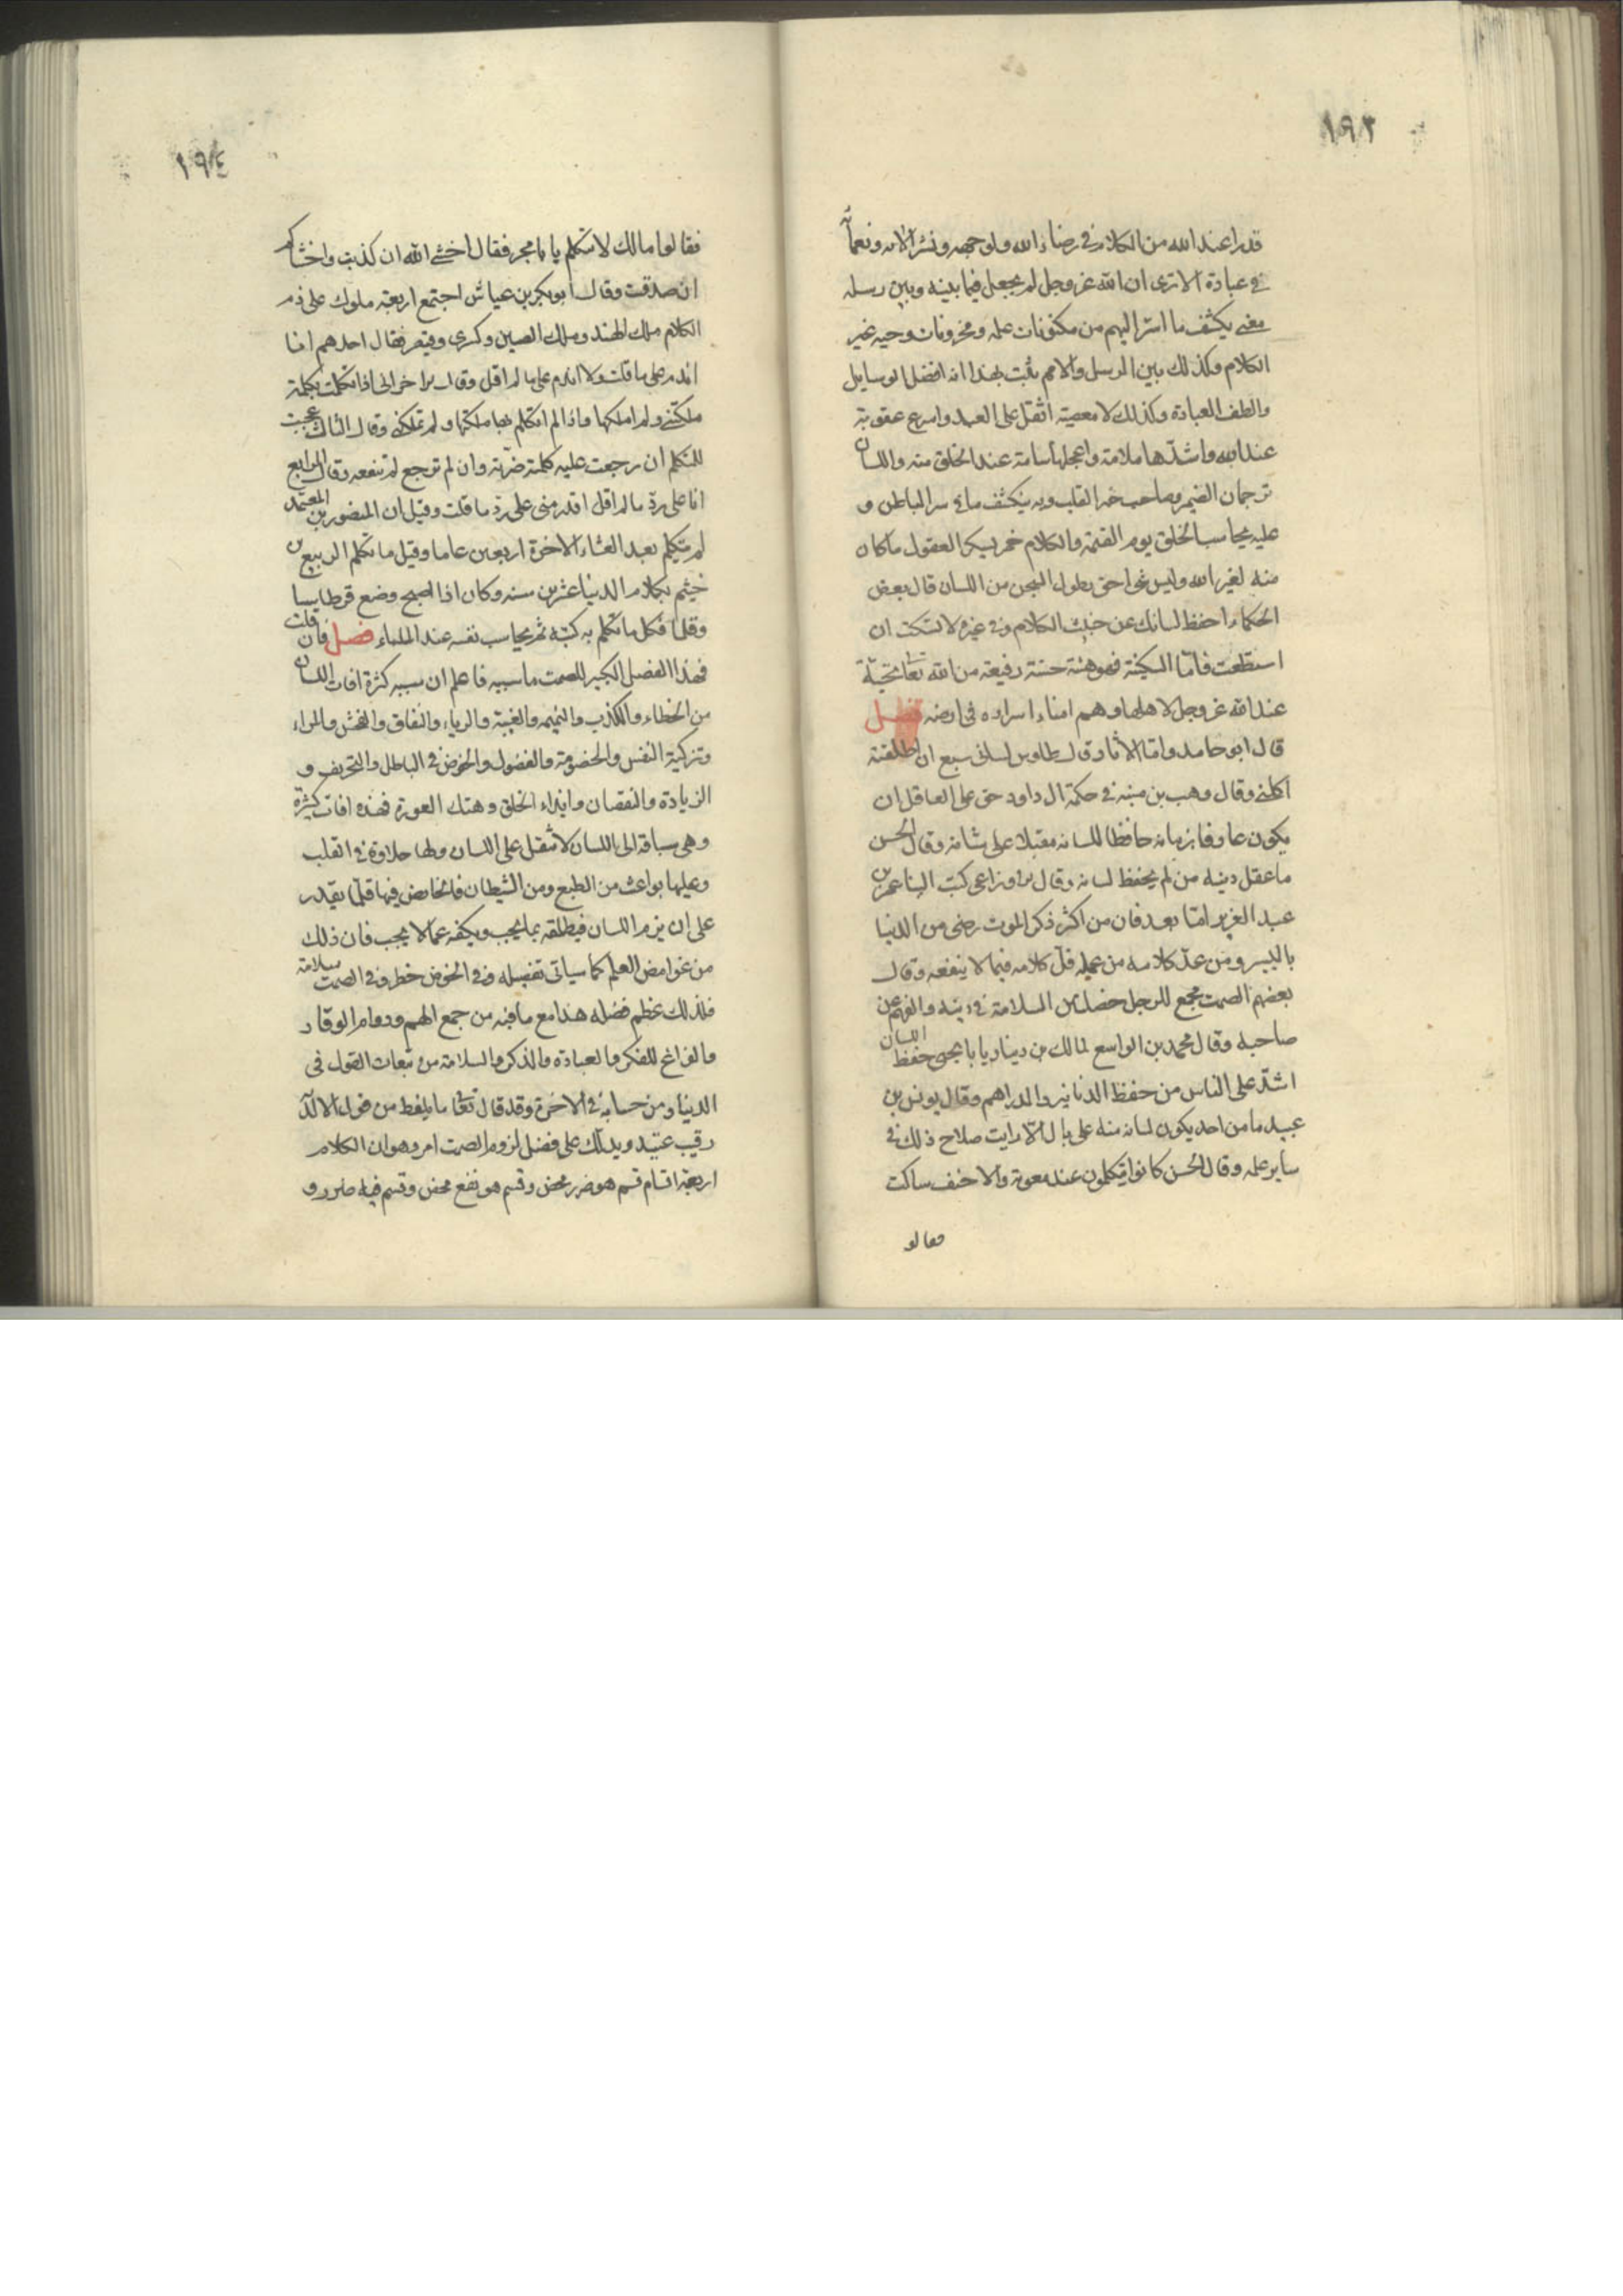 ١٩٣
قدرا عند الله من الكلام في رضاء الله ولوجهه ونشر الائه ونعمائه
في عبادة الا ترى ان الله عز وجل لم يجعل فيما بينه وبين رسله
معنى يكشف ما اسر اليهم من مكنونات علمه ومخزونات وحيه غير
الكلام وكذلك بين الرسل والامم يثبت بهذا انه افضل الوسايل
والطف العبادة وكذلك لا معصية اثقل على العبد واسرع عقوبة
عند الله واشدها ملامة واعجلها سامة عند الخلق منه واللسان
ترجمان الضمير وصاحب خبر القلب وبه ينكشف ما في سر الباطن و
عليه يحاسب الخلق يوم القيمة والكلام خمر يسكر العقول ما كان
منه لغير الله وليس شئ احق بطول السجن من اللسان قال بعض
الحكماء احفظ لسانك عن خبيث الكلام وفي غيره لا تسكت ان
استطعت فاما السكينة فهو هيئة حسنة رفيعة من الله تعا
عند الله عز وجل لاهلها وهم امناء اسراره في ارضه فصل
قال ابو حامد واما الاثار وقال طاوس لساني سبع ان اطلقته
اكلني وقال وهب بن منبه في حكمة ال داود حق على العاقل ان
يكون عارفا بزمانه حافظا للسانه مقبلا على شانه وقال الحسن
ما عقل دينه من لم يحفظ لسانه وقال الاوزاعي كتب الينا عمر بن
عبد العزيز اما بعد فان من اكثر ذكر الموت رضى من الدنيا
باليسير ومن عد كلامه من عمله قل كلامه فيما لا ينفعه وقال
بعضهم الصمت يجمع للرجل خصلتين السلامة في دينه والفهم عن
صاحبه وقال محمد بن الواسع لمالك بن دينار يا با يحيى حفظ اللسان
اشد على الناس من حفظ الدنانير والدراهم وقال يونس بن
عبيد ما من احد يكون لسانه منه على بال الا رايت صلاح ذلك في
ساير عمله وقال الحسن كانوا يتكلمون عند معوية والاحنف ساكت
فقالو
١٩٤
فقالوا مالك لا تتكلم يا با بحر فقال اخشى الله ان كذبت واخشاكم
ان صدقت وقال ابو بكر بن عياش اجتمع اربعة ملوك على ذم
الكلام ملك الهند وملك الصين وكسرى وقيصر فقال احدهم انا
اندم على ما قلت ولا اندم على ما لم اقل وقال الاخر اني اذا تكلمت بكلمة
ملكتني ولم املكها واذا لم اتكلم بها ملكتها ولم تملكني وقال الثالث عجبت
للمتكلم ان رجعت عليه كلمته ضرته وان لم ترجع لم تنفعه وقال الرابع
انا على رد ما لم اقل اقدر مني على رد ما قلت وقيل ان المنصور بن المعتمد
لم يتكلم بعد العشاء الاخرة اربعين عاما وقيل ما تكلم الربيع بن
خيثم بكلام الدنيا عشرين سنه وكان اذا اصبح وضع قرطاسا
وقلما فكل ما تكلم به كتبه ثم يحاسب نفسه عند المساء فصل فان قلت
فهذا الفضل الكبير للصمت ما سببه فاعلم ان سببه كثرة افات اللسان
من الخطاء والكذب والنميمه والغيبة والرياء والنفاق والفحش والمراء
وتزكية النفس والخصومة والفضول والخوض في الباطل والتحريف و
الزيادة والنقصان وايذاء الخلق وهتك العورة فهذه افات كثيرة
وهي سباقه الى اللسان لا تثقل على اللسان ولها حلاوة في القلب
وعليها بواعث من الطبع ومن الشيطان فالخائض فيها قلما يقدر
على ان يزم اللسان فيطلقه بما يجب ويكفه عما لا يجب فان ذلك
من غوامض العلم كما سياتي تفصيله ففي الخوض خطر وفي الصمت سلامة
فلذلك عظم فضله هذا مع ما فيه من جمع الهم ودوام الوقار
والفراغ للفكر والعبادة والذكر والسلامة من تبعات القول في
الدنيا ومن حسابه في الاخرة وقد قال تعا ما يلفظ من قول الا لديه
رقيب عتيد ويدلك على فضل لزوم الصمت امر وهو ان الكلام
اربعة اقسام قسم هو ضرر محض وقسم هو نفع محض وقسم فيه ضرر و